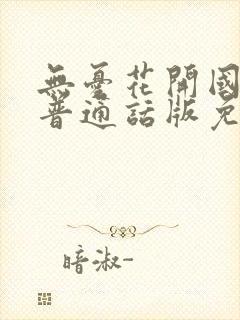 無憂花開國
普通話版免
暗淑-